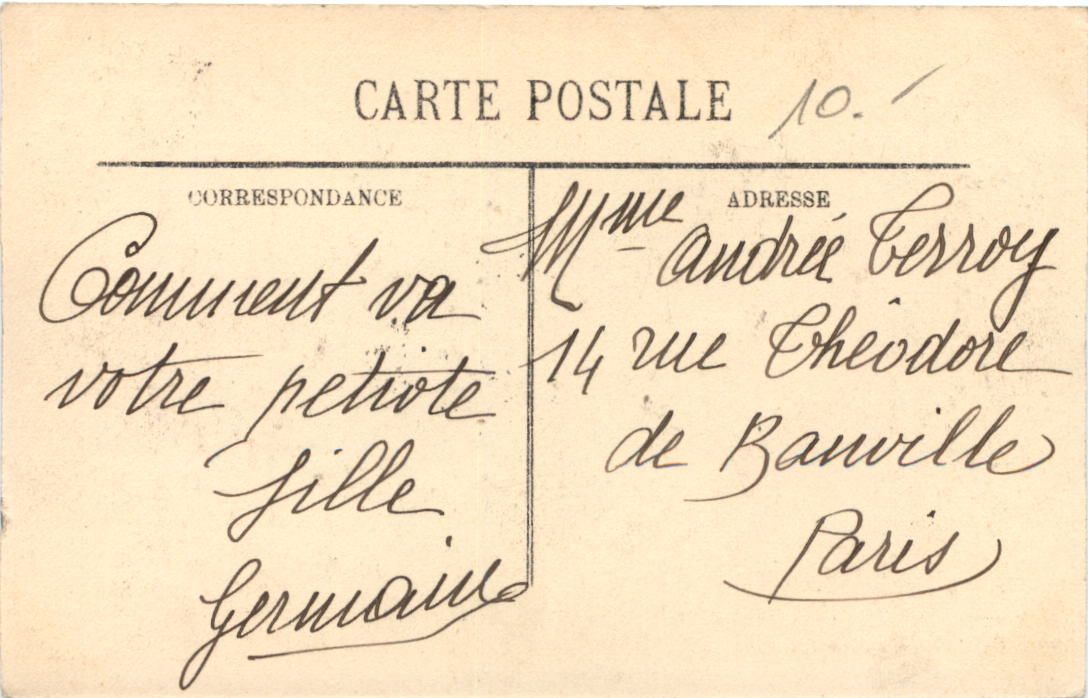 CARTE POSTALE
10.-
CORRESPONDANCE
ADRESSE
Comment va
votre petiote
fille
Germaine
Mme Andrée Terroy
14 rue Théodore
de Banville
Paris